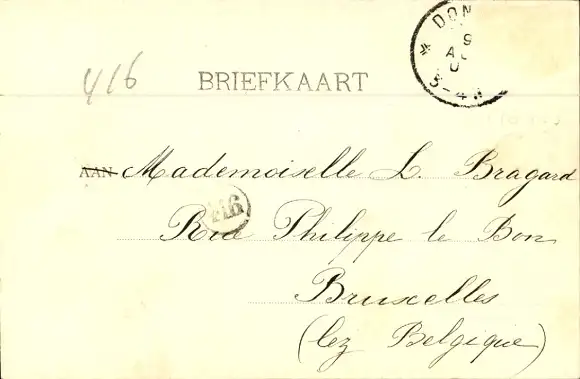 DON
9
AU
0
3-4N
416
BRIEFKAART
AAN Mademoiselle L. Bragard
416
Rue Philippe le Bon
Bruxelles
(lez Belgique)